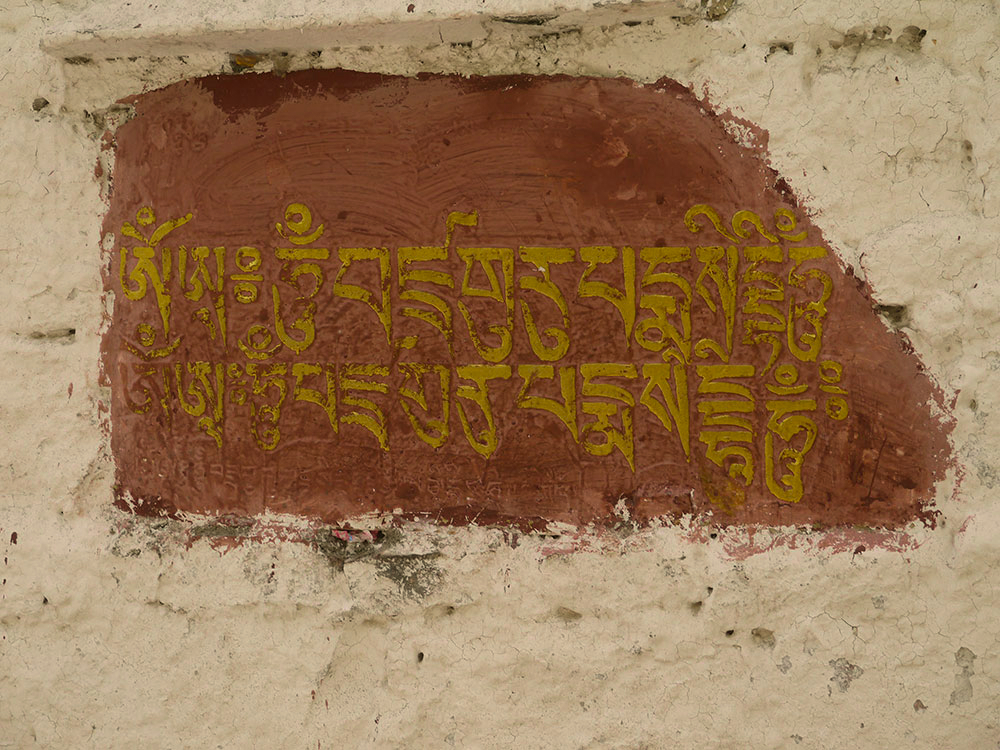 ཨོཾཨཱཿཧཱུྃབཛྲགུརུཔདྨསིདྡྷིཧཱུྃ
ཨོཾཨཱཿཧཱུྃབཛྲགུརུཔདྨསིདྡྷིཧཱུྃཿ